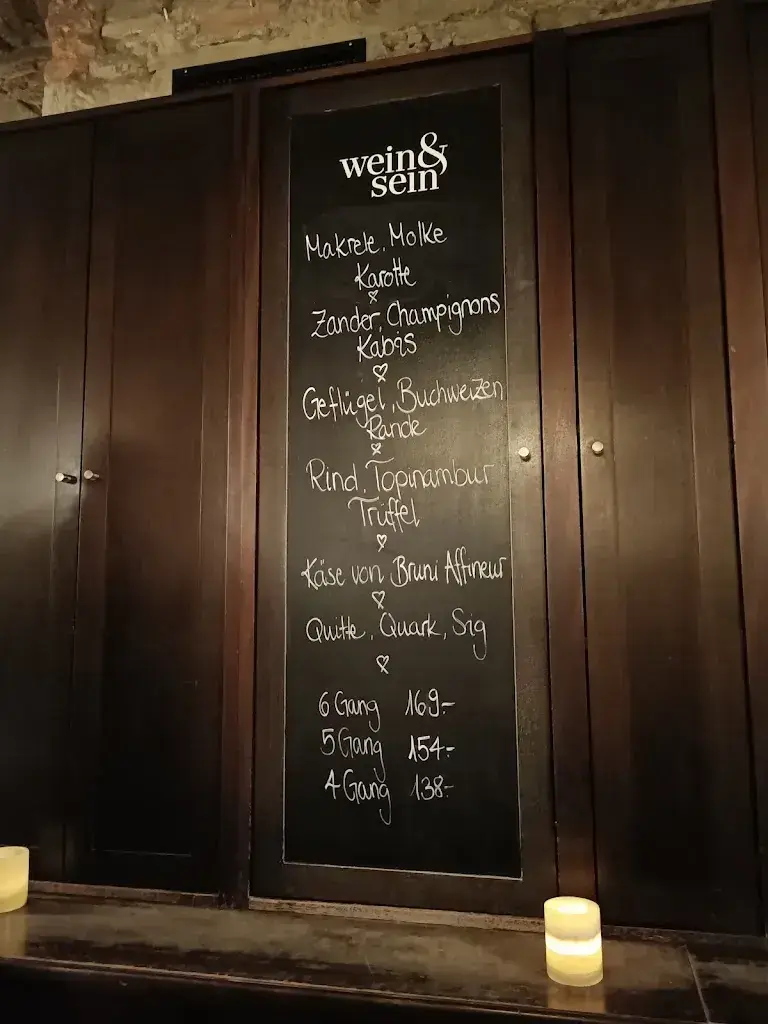 wein&
sein
Makrele, Molke
Karotte
Zander, Champignons
Kabis
Geflügel, Buchweizen
Rande
Rind, Topinambur
Trüffel
Käse von Bruni Affineur
Quitte, Quark, Sig
6 Gang 169.-
5 Gang 154.-
4 Gang 138.-